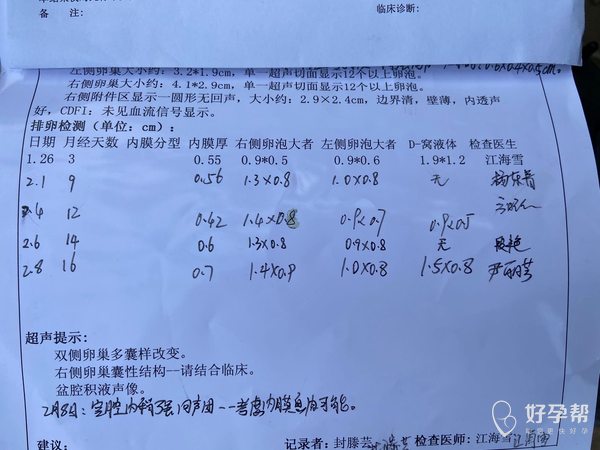 备　注:　临床诊断:
左侧卵巢大小约: 3.2*1.9cm, 单一超声切面显示12个以上卵泡。
右侧卵巢大小约: 4.1*2.9cm, 单一超声切面显示12个以上卵泡。
右侧附件区显示一圆形无回声, 大小约: 2.9×2.4cm, 边界清, 壁薄, 内透声
好, CDFI: 未见血流信号显示。
排卵检测(单位: cm):
日期 月经天数 内膜分型 内膜厚 右侧卵泡大者 左侧卵泡大者 D-窝液体 检查医生
1.26 3 0.55 0.9*0.5 0.9*0.6 1.9*1.2 江海雪
2.1 9 0.56 1.3×0.8 1.0×0.8 无
2.4 12 0.62 1.4×0.8 0.9×0.7 0.9×0.5
2.6 14 0.6 1.3×0.8 0.9×0.8 无
2.8 16 0.7 1.4×0.9 1.0×0.8 1.5×0.8
超声提示:
双侧卵巢多囊样改变。
右侧卵巢囊性结构--请结合临床。
盆腔积液声像。
2月8日: 宫腔内稍强回声团--考虑内膜息肉可能。
好孕帮
建议:　记录者: 封滕芸　检查医师: 江海雪